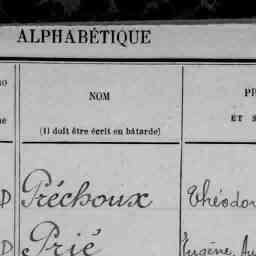 ALPHABÉTIQUE
NOM
(Il doit être écrit en bâtarde)
ET
Préchoux
Prié
Eugène